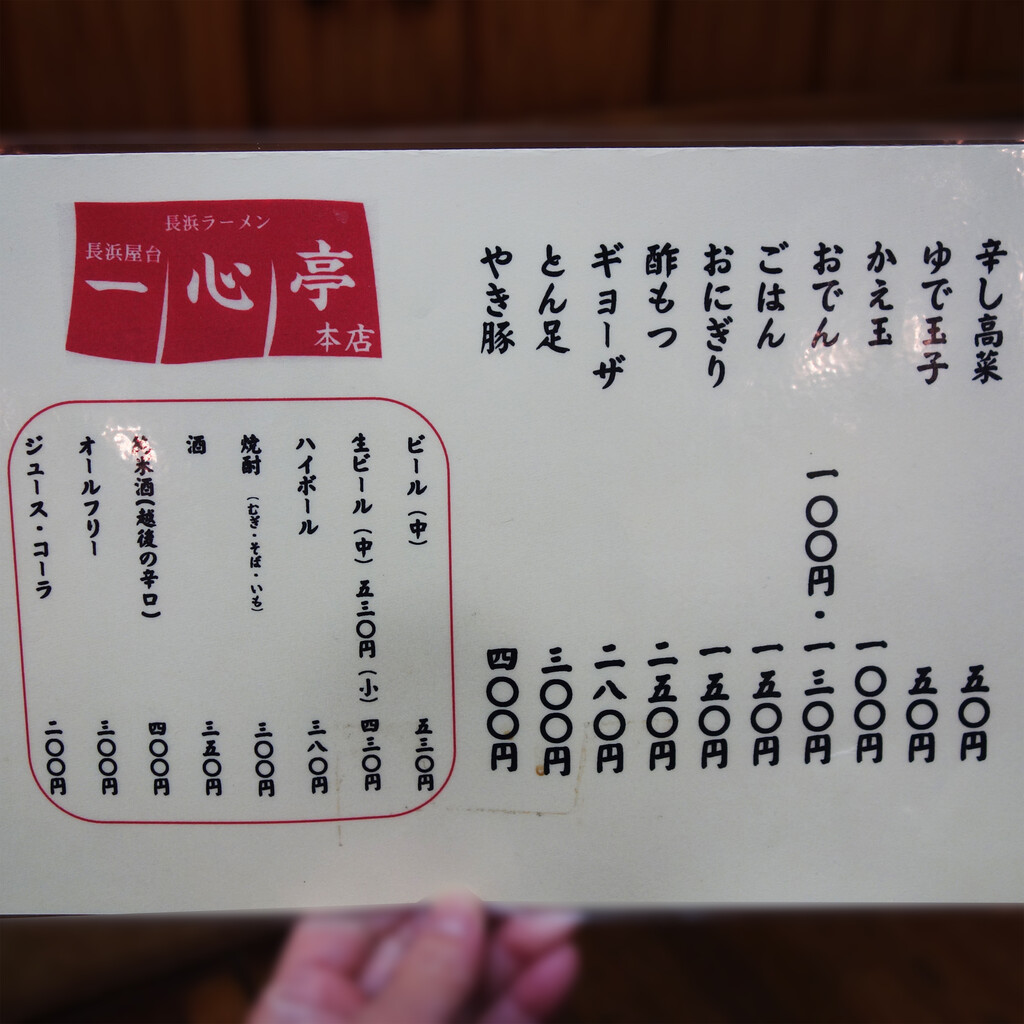 辛し高菜 五〇円
ゆで玉子 五〇円
かえ玉 一〇〇円
おでん 一〇〇円・一三〇円
ごはん 一五〇円
おにぎり 一五〇円
酢もつ 二五〇円
ギョーザ 二八〇円
とん足 三〇〇円
やき豚 四〇〇円
長浜ラーメン
長浜屋台
一心亭
本店
ビール(中) 五三〇円
生ビール(中)五三〇円(小)四三〇円
ハイボール 三八〇円
焼酎(むぎ・そば・いも) 三〇〇円
酒 三五〇円
米酒(越後の辛口) 四〇〇円
オールフリー 三〇〇円
ジュース・コーラ 二〇〇円